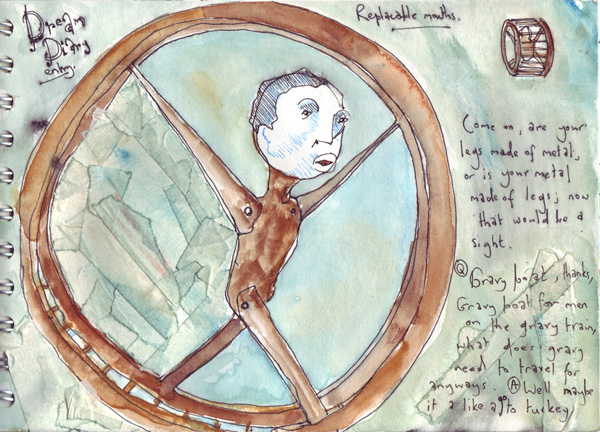 Dream
Diary
entry.
Replacable mouths.
Come on, are your
legs made of metal,
or is your metal
made of legs; now
that would be a
sight.
Q Gravy boat, thanks,
Gravy boat for men
on the gravy train,
what does gravy
need to travel for
anyways. A Well maybe
it a like a to turkey